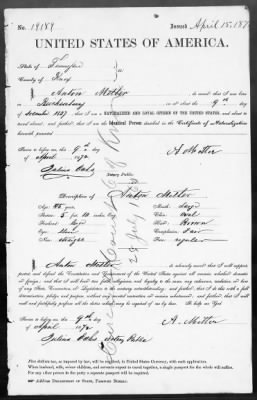 No. 19189 Issued April 15, 187
UNITED STATES OF AMERICA.
State of Tennessee
County of Knox
I, Anton Metler, do swear that I was born in
on or about the 9th day
of November 1827; that I am a NATURALIZED AND LOYAL CITIZEN OF THE UNITED STATES, and about to
travel abroad; and further, that I am the Identical Person described in the Certificate of Naturalization
herewith presented.
Sworn to before me, this 9th day
of April 1872 A Metler
Julius Ochs
Notary Public.
Description of Anton Metler
Age: 45 years. Mouth: large
Stature: 5 feet 10 inches, Eng. Chin: oval
Forehead: high Hair: Brown
Eyes: blue Complexion: Fair
Nose: straight Face: regular
I, Anton Metler, do solemnly swear that I will support,
protect, and defend the Constitution and Government of the United States against all enemies, whether domestic
or foreign; and that I will bear true faith, allegiance, and loyalty to the same, any ordinance, resolution, or law
of any State, Convention, or Legislature to the contrary notwithstanding; and further, that I do this with a full
determination, pledge, and purpose, without any mental reservation or evasion whatsoever; and further, that I will
well and faithfully perform all the duties which may be required of me by law. So help me God.
Sworn to before me, this 9th day
of April 1872 A. Metler
Julius Ochs Notary Public
Five dollars tax, as imposed by law, will be required, in United States Currency, with each application.
When husband, wife, minor children, and servants expect to travel together, a single passport for the whole will suffice.
For any other person in the party a separate passport will be required.
Address DEPARTMENT OF STATE, PASSPORT BUREAU.